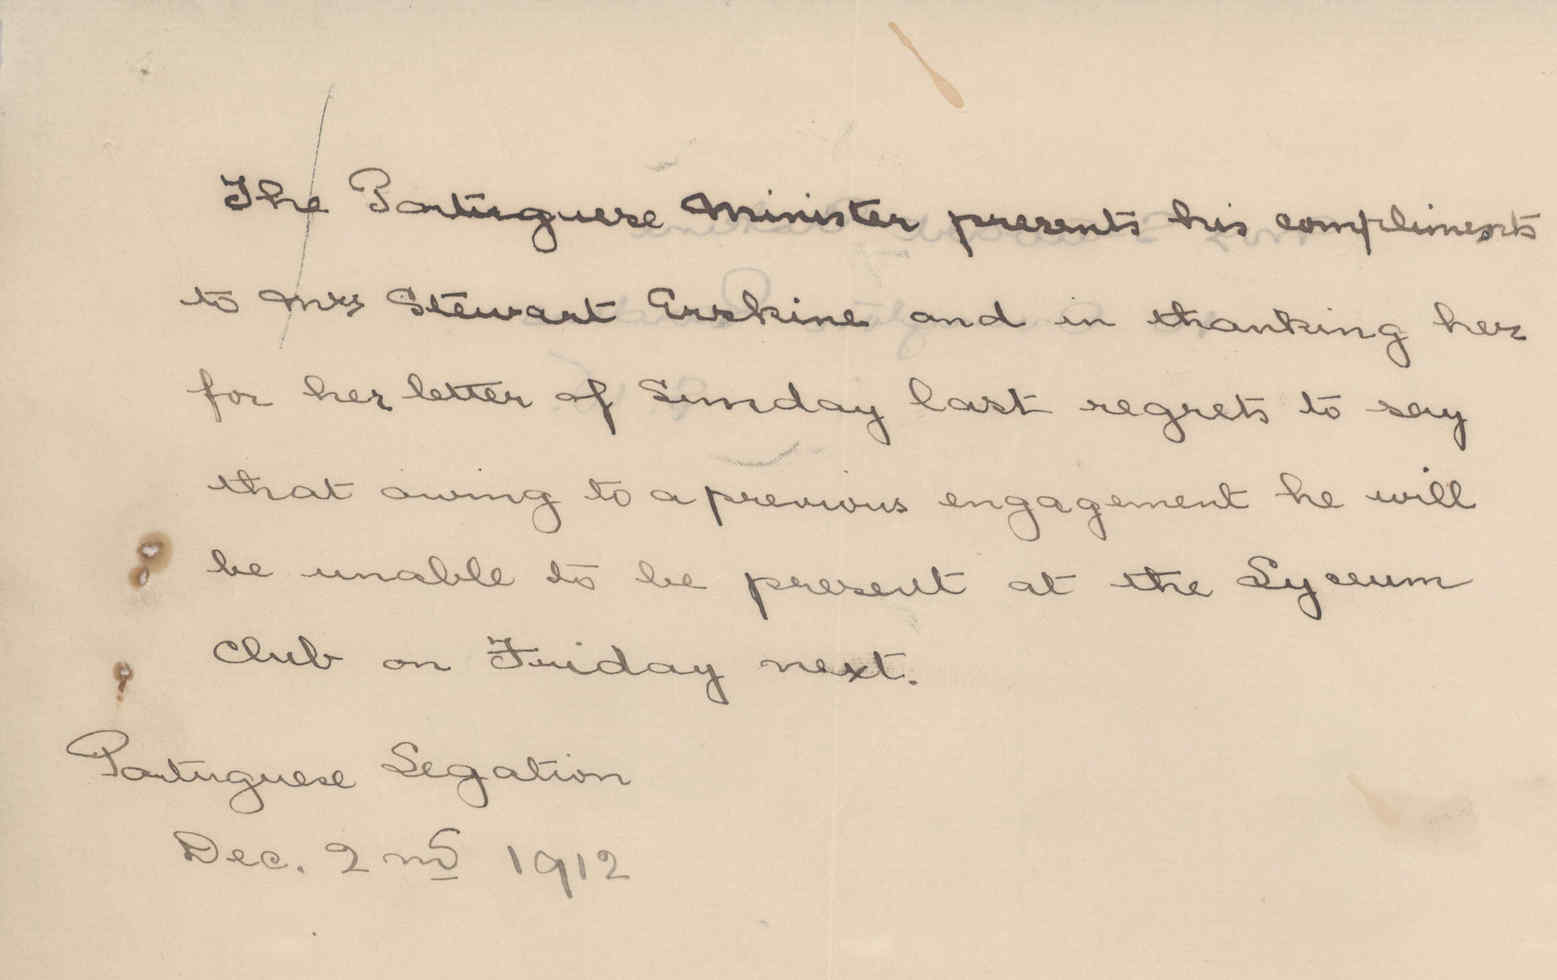 The Portuguese Minister presents his compliments
to Mrs Stewart Erskine and in thanking her
for her letter of Sunday last regrets to say
that owing to a previous engagement he will
be unable to be present at the Lyceum
Club on Friday next.
Portuguese Legation
Dec. 2nd 1912